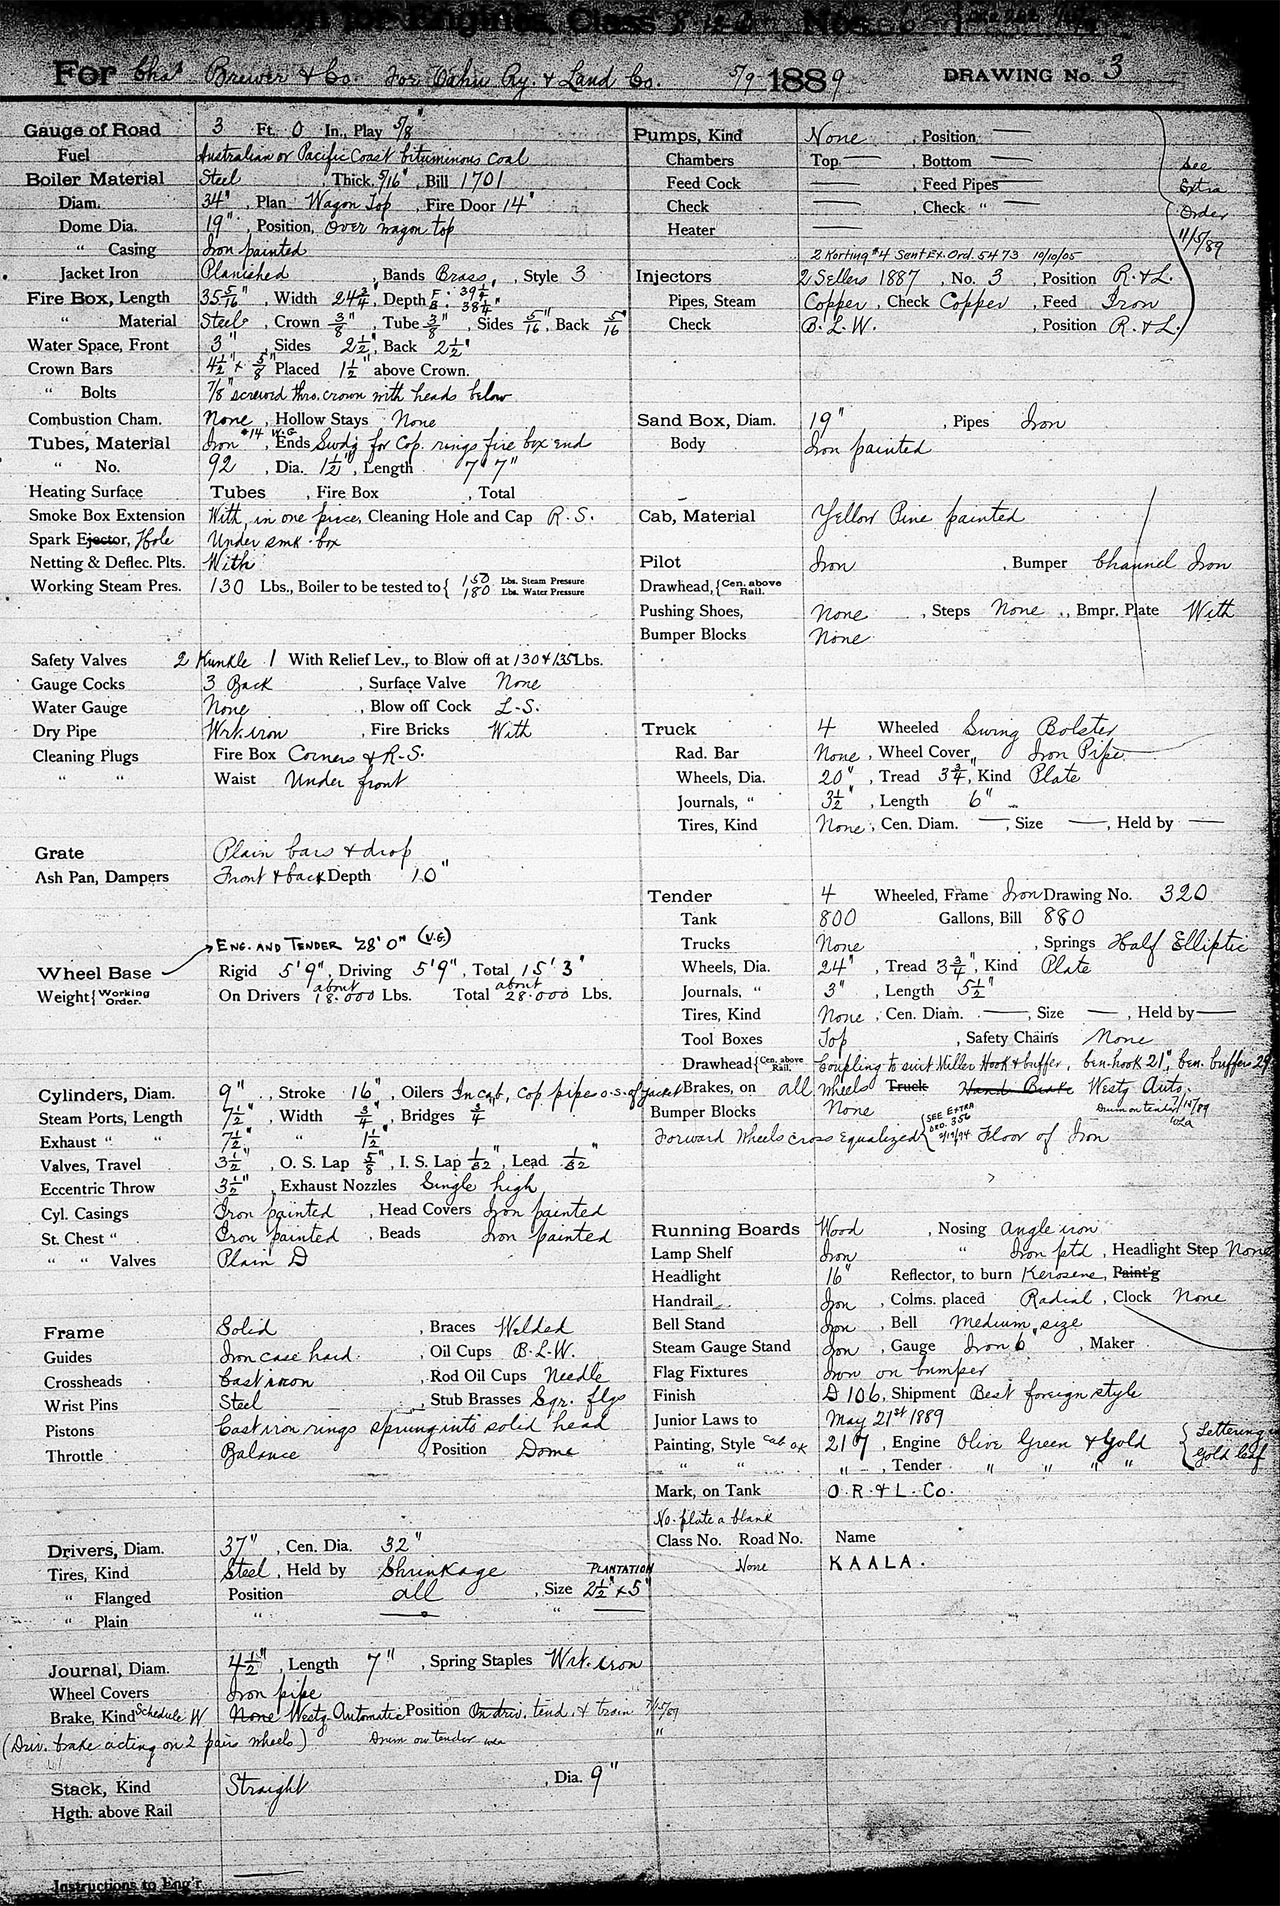 for Engines, Class Nos.
For Chas Brewer & Co. for Oahu Ry. & Land Co. 5/9 1889 DRAWING No. 3
Gauge of Road 3 Ft. 0 In., Play 5/8"
Fuel Australian or Pacific Coast bituminous coal
Boiler Material Steel , Thick. 5/16" , Bill 1701
Diam. 34" , Plan Wagon Top , Fire Door 14"
Dome Dia. 19" , Position, Over wagon top
" Casing Iron painted
Jacket Iron Planished , Bands Brass , Style 3
Fire Box, Length 35 5/16" , Width 24 3/4" , Depth F. 39 1/4" B. 38 1/4"
" Material Steel , Crown 3/8" , Tube 3/8" , Sides 5/16" , Back 5/16"
Water Space, Front 3" , Sides 2 1/2" , Back 2 1/2"
Crown Bars 4 1/2" x 5/8" Placed 1 1/2" above Crown.
" Bolts 7/8" screwed thro. crown with heads below
Combustion Cham. None , Hollow Stays None
Tubes, Material Iron #14 W.G. , Ends Swdg for Cop. rings fire box end
" No. 92 , Dia. 1 1/2" , Length 7' 7"
Heating Surface Tubes , Fire Box , Total
Smoke Box Extension With, in one piece, Cleaning Hole and Cap R.S.
Spark Ejector, Hole Under smk. box
Netting & Deflec. Plts. With
Working Steam Pres. 130 Lbs., Boiler to be tested to { 150 Lbs. Steam Pressure
180 Lbs. Water Pressure
Safety Valves 2 Kunkle 1 With Relief Lev., to Blow off at 130 & 135 Lbs.
Gauge Cocks 3 Back , Surface Valve None
Water Gauge None , Blow off Cock L.S.
Dry Pipe Wrt. iron , Fire Bricks With
Cleaning Plugs Fire Box Corners & R.S.
" " Waist Under front
Grate Plain bars & drop
Ash Pan, Dampers Front & back Depth 10"
ENG. AND TENDER 28' 0" (V.G.)
Wheel Base Rigid 5' 9" , Driving 5' 9" , Total 15' 3"
Weight { Working Order. On Drivers about 18.000 Lbs. Total about 28.000 Lbs.
Cylinders, Diam. 9" , Stroke 16" , Oilers In cab, cop. pipes o.s. of jacket
Steam Ports, Length 7 1/2" , Width 3/4" , Bridges 3/4"
Exhaust " " 7 1/2" " 1 1/2"
Valves, Travel 3 1/2" , O. S. Lap 5/8" , I. S. Lap 1/32" , Lead 1/32"
Eccentric Throw 3 1/2" , Exhaust Nozzles Single high
Cyl. Casings Iron painted , Head Covers Iron painted
St. Chest " Iron painted , Beads Iron painted
" " Valves Plain D
Frame Solid , Braces Welded
Guides Iron case hard. , Oil Cups B.L.W.
Crossheads Cast iron , Rod Oil Cups Needle
Wrist Pins Steel , Stub Brasses Sqr. flgs
Pistons Cast iron rings sprung into solid head
Throttle Balance Position Dome
Drivers, Diam. 37" , Cen. Dia. 32"
Tires, Kind Steel , Held by Shrinkage PLANTATION
" Flanged Position all , Size 2 1/2" x 5"
" Plain " — " —
Journal, Diam. 4 1/2" , Length 7" , Spring Staples Wrt. iron
Wheel Covers Iron pipe
Brake, Kind Schedule W None Westg. Automatic Position On driv. tend. & train 7/15/89
(Driv. brake acting on 2 pairs wheels) Drum on tender "
Stack, Kind Straight , Dia. 9"
Hgth. above Rail
Instructions to Eng'r
Pumps, Kind None , Position —
Chambers Top — , Bottom —
Feed Cock — , Feed Pipes —
Check — , Check " —
Heater —
See Extra Order 11/5/89
2 Korting #4 Sent Ex. Ord. 5473 10/10/05
Injectors 2 Sellers 1887 , No. 3 , Position R. & L.
Pipes, Steam Copper , Check Copper , Feed Iron
Check B.L.W. , Position R. & L.
Sand Box, Diam. 19" , Pipes Iron
Body Iron painted
Cab, Material Yellow Pine painted
Pilot Iron , Bumper Channel Iron
Drawhead, { Cen. above Rail.
Pushing Shoes, None , Steps None , Bmpr. Plate With
Bumper Blocks None
Truck 4 Wheeled Swing Bolster
Rad. Bar None , Wheel Cover Iron Pipe
Wheels, Dia. 20" , Tread 3 3/4" , Kind Plate
Journals, " 3 1/2" , Length 6"
Tires, Kind None , Cen. Diam. — , Size — , Held by —
Tender 4 Wheeled, Frame Iron Drawing No. 320
Tank 800 Gallons, Bill 880
Trucks None , Springs Half Elliptic
Wheels, Dia. 24" , Tread 3 3/4" , Kind Plate
Journals, " 3" , Length 5 1/2"
Tires, Kind None , Cen. Diam. — , Size — , Held by —
Tool Boxes Top , Safety Chains None
Drawhead { Cen. above Rail. Coupling to suit Miller Hook & buffer, cen. hook 21", cen. buffer 29
Brakes, on all Wheels Truck Hand Brake Westg Auto.
Bumper Blocks None Drum on tender 7/15/89
Forward Wheels cross Equalized { SEE EXTRA ORD. 356 Floor of Iron
Running Boards Wood , Nosing Angle iron
Lamp Shelf Iron " Iron ptd , Headlight Step None
Headlight 16" Reflector, to burn Kerosene, Paint'g
Handrail Iron , Colms. placed Radial , Clock None
Bell Stand Iron , Bell Medium size
Steam Gauge Stand Iron , Gauge Iron 6" , Maker
Flag Fixtures Iron on bumper
Finish D 106, Shipment Best foreign style
Junior Laws to May 21st 1889
Painting, Style cab ok 217 , Engine Olive Green & Gold { Lettering in Gold leaf
" " " , Tender " " " "
Mark, on Tank O. R. & L. Co.
No. plate a blank
Class No. Road No. Name
None KAALA.